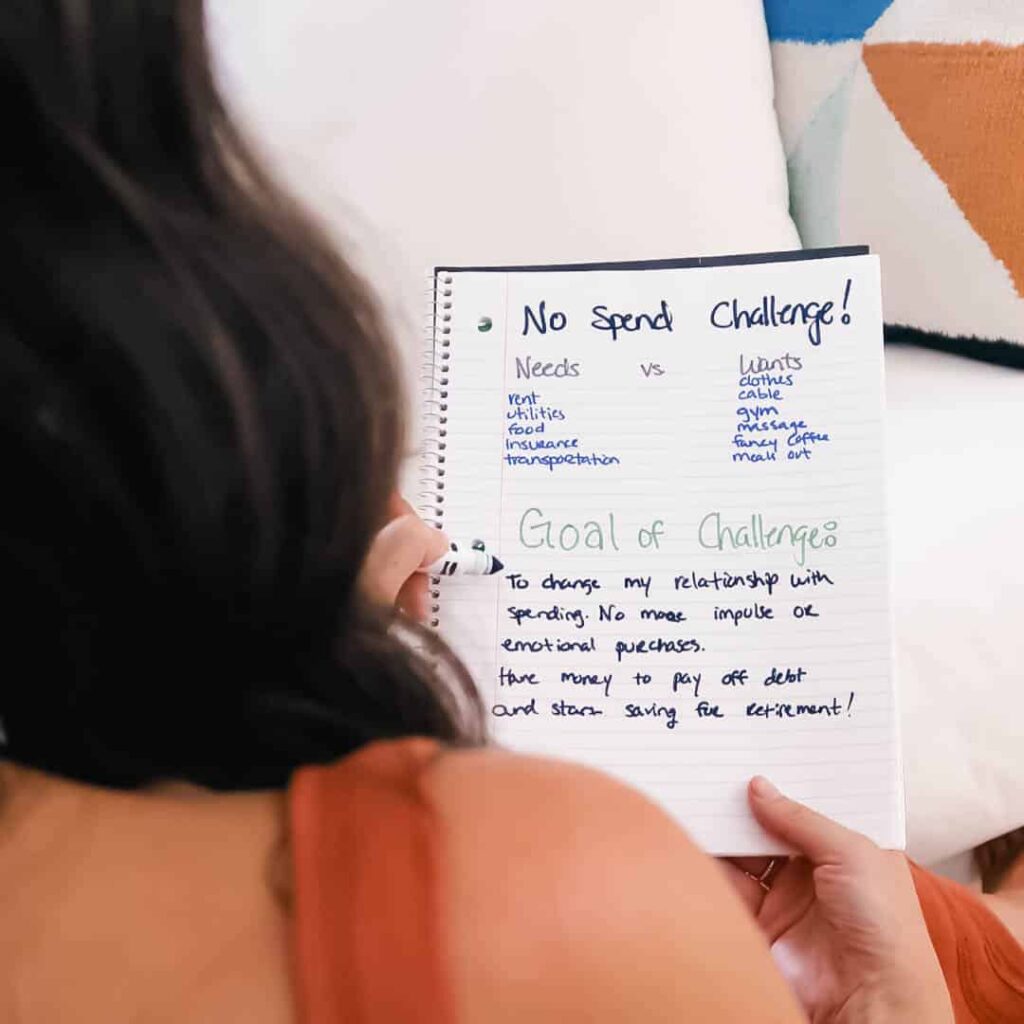 No Spend Challenge!
Needs vs Wants
rent
utilities
food
insurance
transportation
clothes
cable
gym
massage
fancy coffee
meals out
Goal of Challenge:
To change my relationship with
spending. No more impulse or
emotional purchases.
Have money to pay off debt
and start saving for retirement!